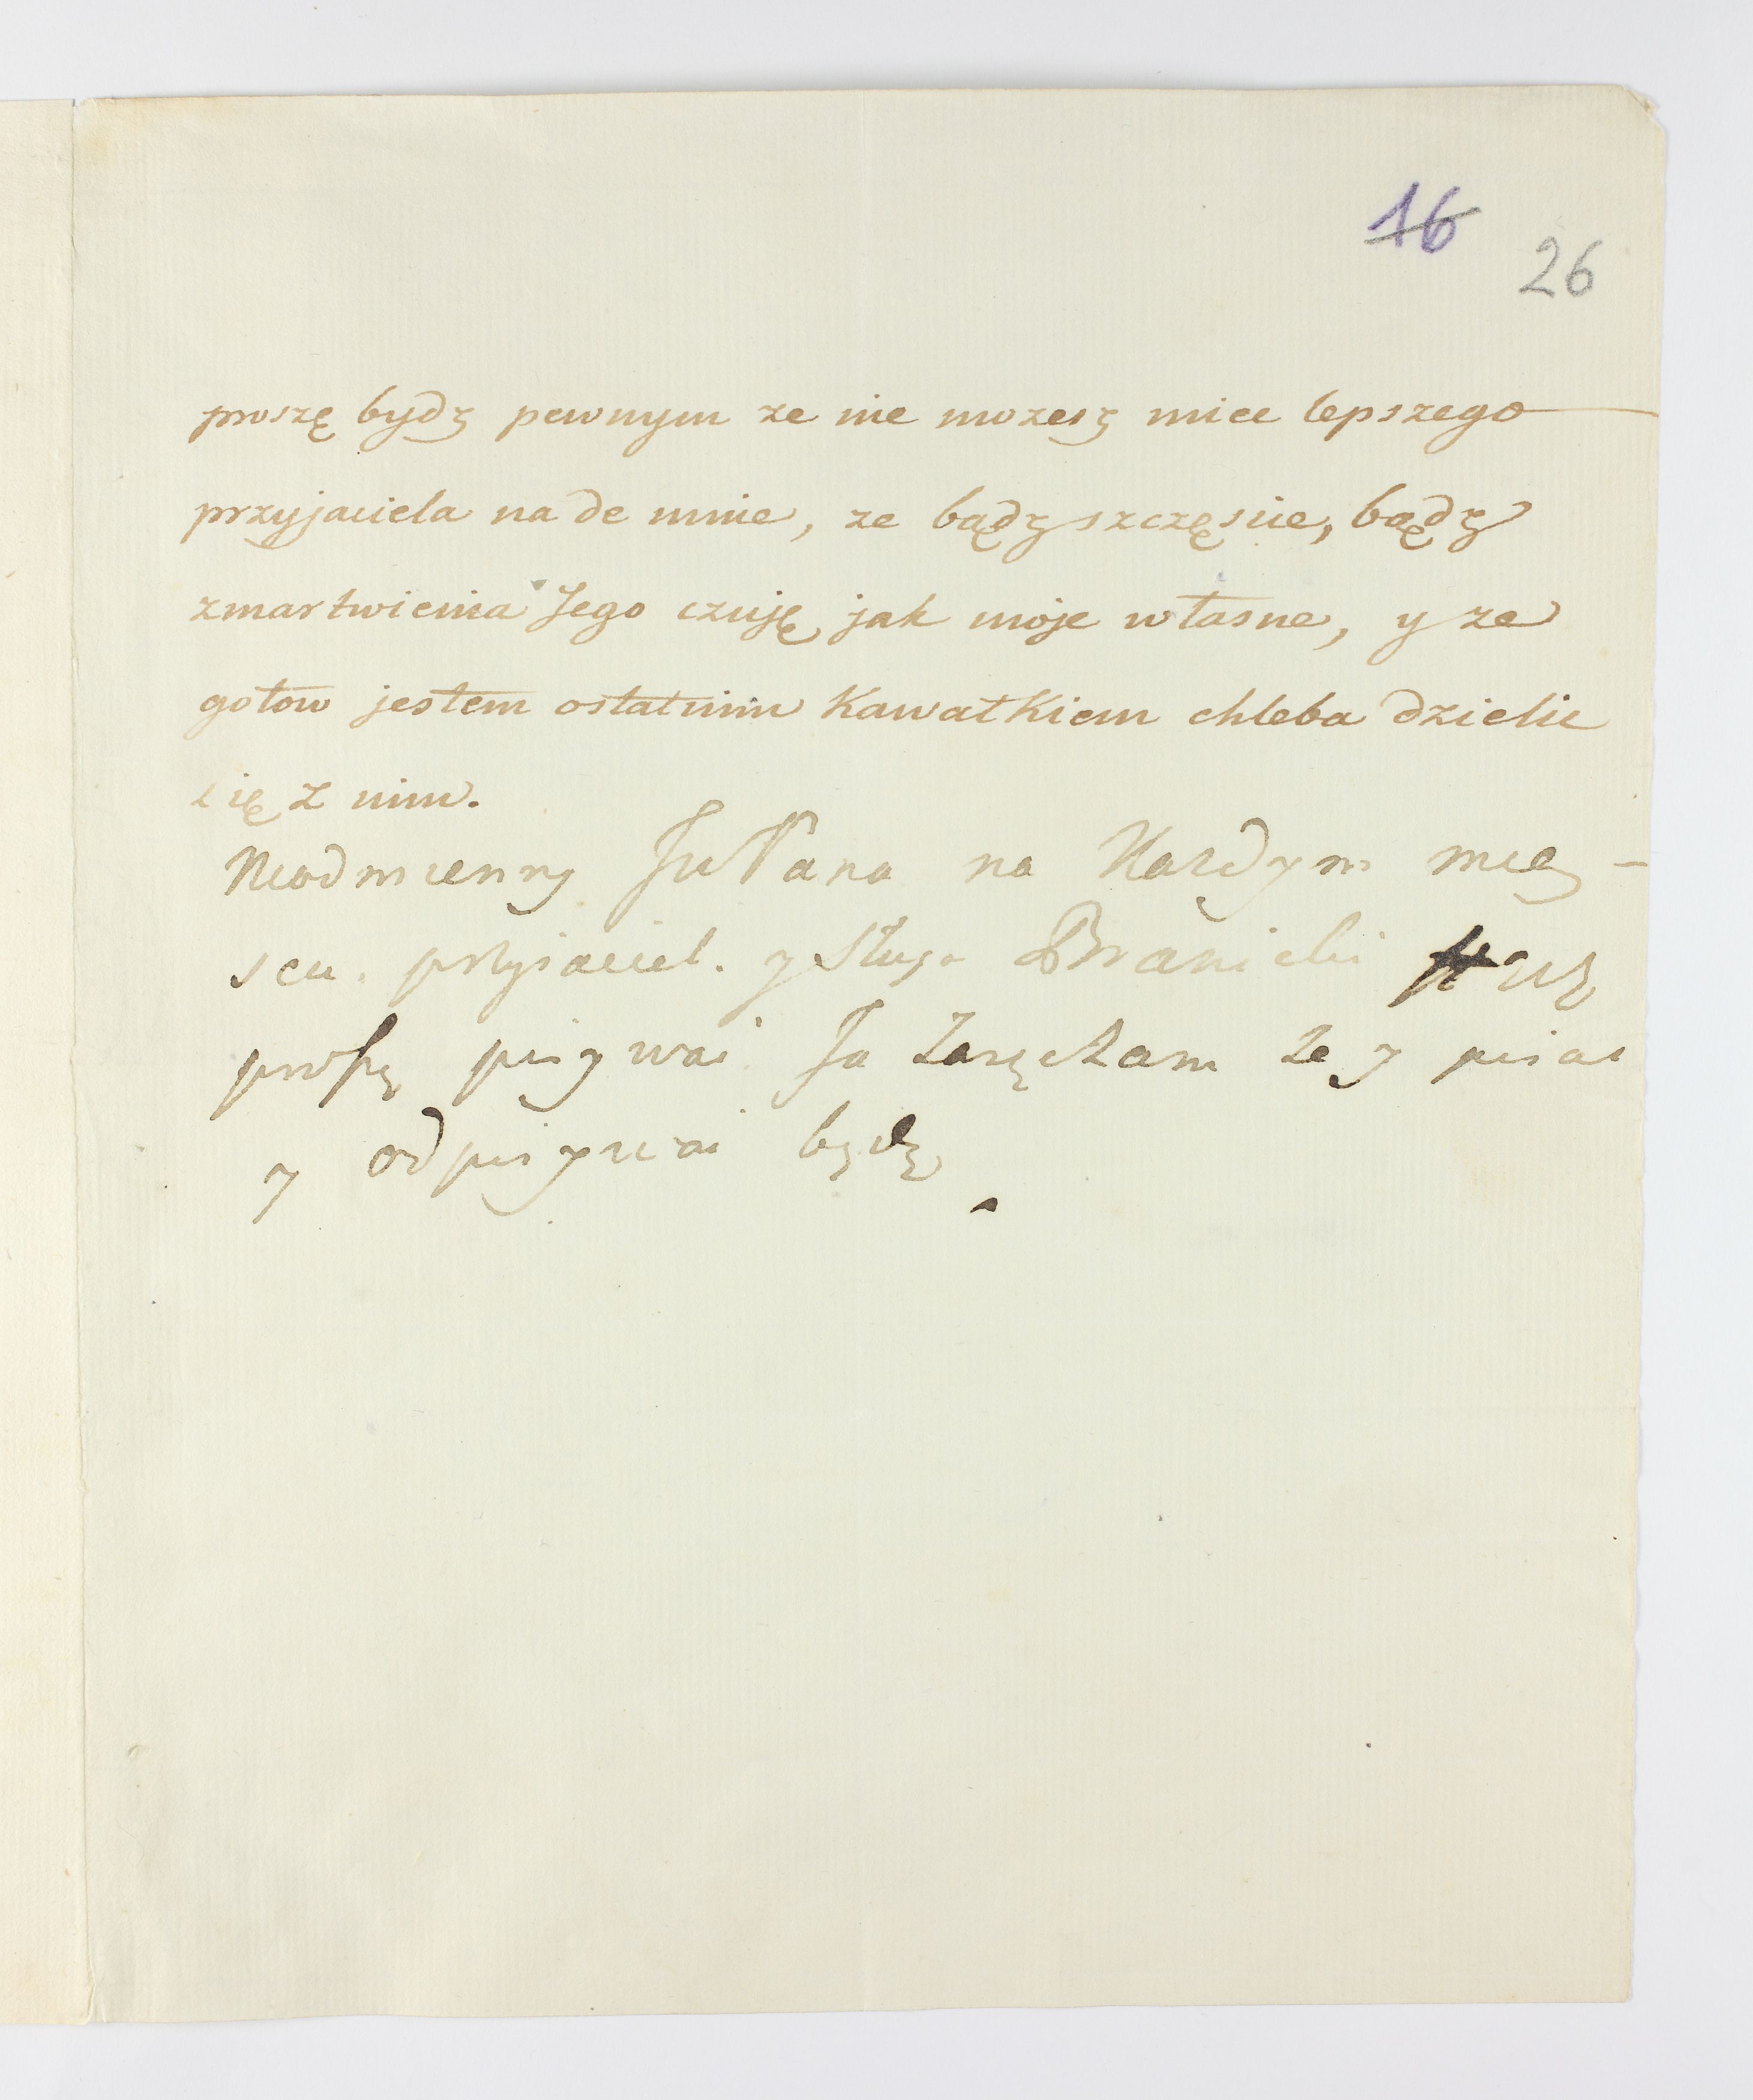 16
26
proszę bydz pewnym ze nie mozesz miec lepszego
przyjaciela na de mnie, ze bądz szczęscie, bądz
zmartwienia Jego czuję jak moje własne, y ze
gotow jestem ostatnim Kawałkiem chleba dzielic
się z nim.
Nieodmienny JWPana na Kazdym miey-
scu. przyiaciel. y sługa Branicki
proszę pisywac Ja Zaręczam Ze y pisac
y odpisywac będę